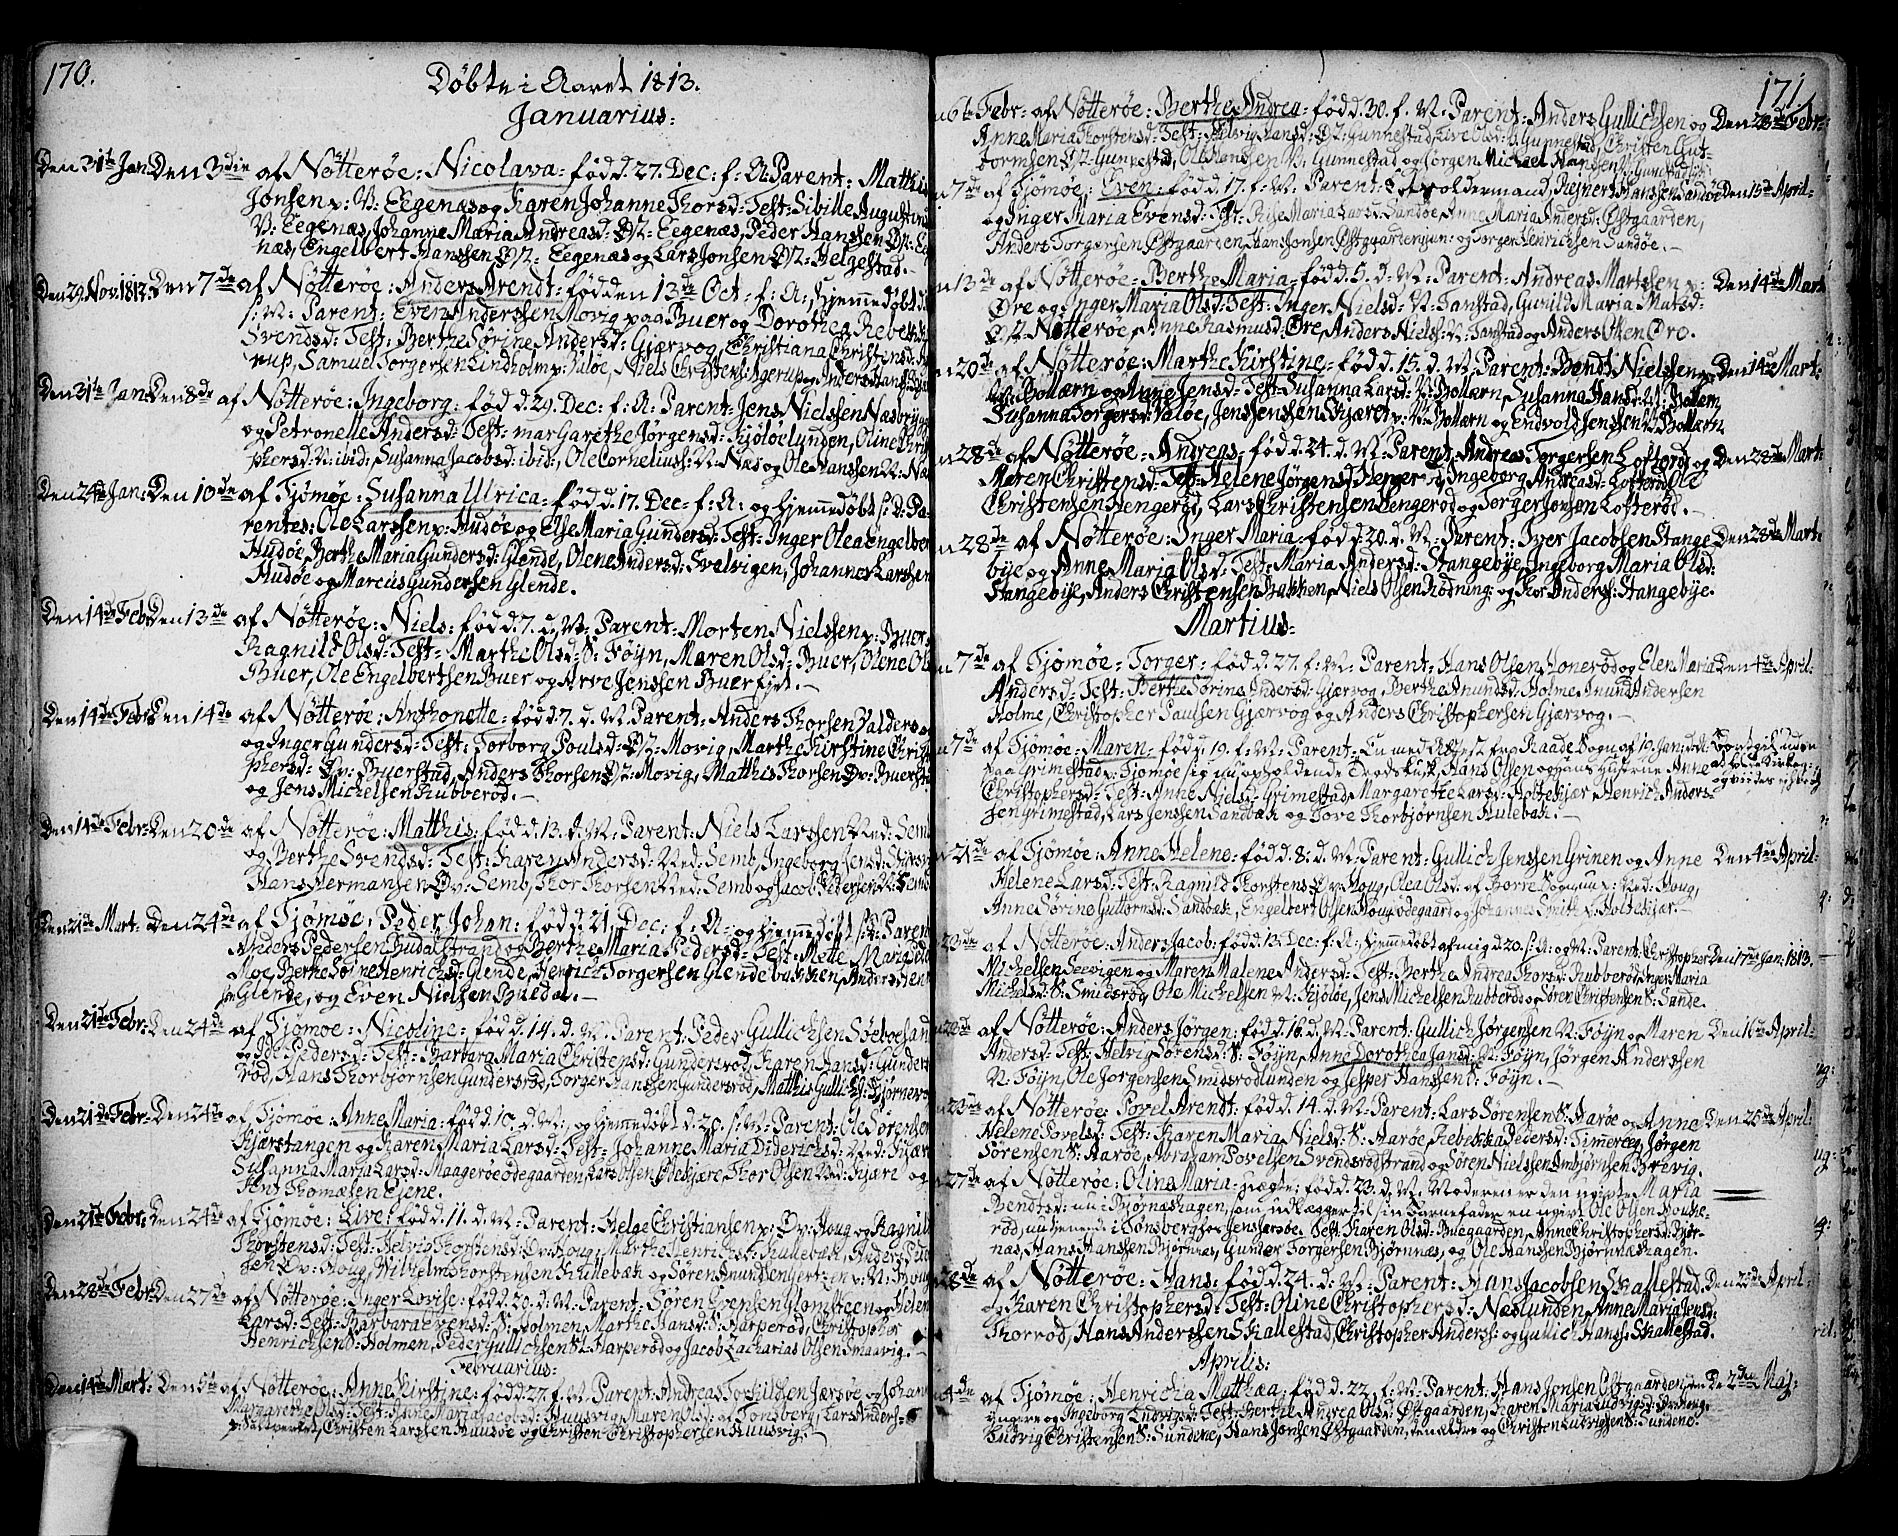 170.
Döbte i Aaret 1813.
Januarius:
Den 31te Jan: Den 3die af Nötteröe: Nicolava: född. 27. Dec: f: A: Parent: Matthis
Jonsen p: V: Eegenæs og Karen Johanne Thorsd: Test: Sibille Augustin
V: Eegenæs, Johanne Maria Andreasd: Öv: Eegenæs, Peder Hanssen Öv: Ee
næs, Engelbert Hanssen Öv: Eegenæs og Lars Jonsen Öv: Helgestad.
Den 29. Nov. 1812: Den 7de af Nötteröe: Anders Arendt: född den 13de Oct: f: A: hjemmedöbt
Parent: Even Anderssen Movig paa Buer og Dorothea Rebekka
Svendsd: Test: Berthe Sörine Andersd: Gjærvog, Christiana Christensd:
rup, Samuel Torgersen Lindholm p: Valöe, Niels Christens: Agerup og Anders Hans
Den 31te Jan: Den 8de af Nötteröe: Ingeborg: född. 29. Dec: f: A: Parent: Jens Nielssen Næsbrygge
og Petronelle Andersd: Test: Margarethe Jörgensd: Kjölöelunden, Oline Christo
phersd: N: ibid:, Susanna Jacobsd: ibid:, Ole Corneliuss: N: Næs og Ole Hanssen N: Næ
Den 24de Jan: Den 10de af Tjömöe: Susanna Ulrica: född. 17. Dec: f: A: og hjemmedöbt s: D: Pa-
rentes: Ole Larssen p: Hudöe og Else Maria Gundersd: Test: Inger Olea Engelber
Hudöe, Berthe Maria Gundersd: Glende, Olene Andersd: Svelvigen, Johannes Larssen
Hudöe og Marcus Gundersen Glende.
Den 14de Feb: Den 13de af Nötteröe: Niels: född. 7. d. M: Parent: Morten Nielssen p: Buer
Ragnild Olsd: Test: Marthe Olsd: S: Föyn, Maren Olsd: Buer, Olene Ol
Buer, Ole Engelbertsen Buer og Arve Jenssen Buerfjet.
Den 14de Febr: Den 14de af Nötteröe: Anthonette: född. 7. d. M: Parent: Anders Thorsen Valders
og Inger Gundersd: Test: Torborg Poulsd: Öv: Movig, Marthe Kirstine Christo
phersd: Öv: Buerstad, Anders Thorsen Öv: Movig, Matthis Thorsen Öv: Buersta
og Jens Michelsen Rubberöd.
Den 14de Febr: Den 20de af Nötteröe: Matthis: född. 13. d. M: Parent: Niels Larssen Ned: Semb
og Berthe Svendsd: Test: Karen Andersd: Ned: Semb, Ingeborg Jensd:
Hans Hermansen Öv: Semb, Thor Thorsen Ned: Semb og Jacob Pedersen N: Semb
Den 21de Mart: Den 24de af Tjömöe: Peder Johan: född. 21. Dec: f: A: og hjemmedöbt Parent
Anders Pedersen Budalstrand og Berthe Maria Pedersd: Test: Mette Maria
Moe, Berthe Sörine Henrichsd: Glende, Henrich Torgersen Glendebakken, Anders Hen
Glende, og Even Nielsen Buedal.
Den 21de Febr: Den 24de af Tjömöe: Nicoline: född. 14. d. M: Parent: Peder Gullichsen Söeboesand
og Ide Pedersd: Test: Barbara Maria Christensd: Gundersröd, Karen Hansd: Gunders
röd, Hans Thorbjörnsen Gundersröd, Torger Hanssen Gundersröd, Matthis Gulli
Den 21de Febr: Den 24de af Tjömöe: Anne Maria: född. 10. d. M: og hjemmedöbt d. 20. s: M: Parent: Ole Sörensen
Kjærstangen og Karen Maria Larsd: Test: Johanne Maria Diderichsd: Ned: Kjær
Susanna Maria Larsd: Maageröe ödegaarden, Lars Olsen Olekjære, Thor Olsen Ned: Kjære og
Thomæsen Ejene.
Den 21de Febr: Den 24de af Tjömöe: Live: född. 11. d. M: Parent: Helge Christiansen p: Öv: Houg og Ragnild
Thorstensd: Test: Helvig Thorstensd: Öv: Houg, Marthe Henrichsd: Kullebæk, Anders
Öv: Houg, Wilhelm Thorstensen Kullebæk og Sören Anundsen
Den 28de Febr: Den 27de af Nötteröe: Inger Lovise: född. 20. d. M: Parent: Sören Evensen Glomsteen og Helene
Larsd: Test: Barbara Evensd: S: Holmen, Marthe Hansd: S: Harperöd, Christopher
Henrichsen S: Holmen, Peder Gullichsen S: Harperöd og Jacob Zacharias Olsen Smaavig.
Februarius:
Den 14de Mart: Den 5te af Nötteröe: Anne Kirstine: född. 27. f. M: Parent: Andreas Torkildsen Jærsöe og Johanne
Margarethe Olsd: Test: Anne Maria Jacobsd: Huusvig, Maren Olsd: af Tönsberg, Lars Anders:
Christen Larssen Huusöe og Christen Christophersen Huusvig.
171.
6te Febr: af Nötteröe: Berthe Andrea: född. 30. f. M: Parent: Anders Gullichsen og Den 28de Febr:
Anne Maria Thorstensd: Test: Helvig Hansd: Öv: Gunnestad, Live Olsd: V: Gunnestad, Christen Gut-
tormsen Öv: Gunnestad, Ole Hanssen V: Gunnestad og Jörgen Michael Hanssen V: Gunnestad
7de af Tjömöe: Even: född. 17. f. M: Parent: Resnert Hanssen Sandöe Den 15de April.
og Inger Maria Evensd: Test: Maria Larsd: Sandöe, Anne Maria Andersd: Östgaarden,
Anders Torgersen Östgaarden, Hans Jonsen Östgaarden jun: og Torger Henrichsen Sandöe.
13de af Nötteröe: Berthe Maria: född. 5. d. M: Parent: Andreas Marthsen p: Den 14de Mart:
Öre og Inger Maria Olsd: Test: Inger Nielsd: N: Tanstad, Gunild Maria Matsd:
Öv: Nötteröe, Anne Rasmusd: Öre, Anders Niels: N: Tanstad og Anders Olsen Öre.
20de af Nötteröe: Marthe Kirstine: född. 15. d. M: Parent: Bendt Nielssen p: Den 14de Mart:
Bollærn og Anne Jensd: Test: Susanna Larsd: V: Bollærn, Susanna Hansd: M: Bollærn
Susanna Torgersd: Valöe, Jens Jenssen Skjæret p: V: Bollærn og Endvold Jenssen V: Bollærn.
28de af Nötteröe: Andreas: född. 24. d. M: Parent: Andreas Torgersen Lofteröd og Den 28de Mart:
Maren Christensd: Test: Helene Jörgensd: Hengeröd, Ingeborg Andreasd: Lofteröd, Ole
Christensen Hengeröd, Lars Christensen Hengeröd og Torger Jonsen Lofteröd.
28de af Nötteröe: Inger Maria: född. 20. d. M: Parent: Iver Jacobsen Stange- Den 28de Mart:
bye og Anne Maria Olsd: Test: Maria Andersd: Stangebye, Ingeborg Maria Olsd:
Stangebye, Anders Christensen Bakken, Niels Olsen Rödning: og Thor Anders: Stangebye.
Martius:
7de af Tjömöe: Torger: född. 27. f. M: Parent: Hans Olsen Honeröd og Elen Maria Den 4de April:
Andersd: Test: Berthe Sörine Andersd: Gjærvog, Berthe Anundsd: Holme, Anund Andersen
Holme, Christopher Paulsen Gjærvog og Anders Christophersen Gjærvog.
7de af Tjömöe: Maren: född. 19. f. M: Parent: En med Attest fra Raade Sogn af 19. Jan: Bortgik uden
paa Grimestad p: Tjömöe sig nu opholdende Hans Olsen og hans Hustrue Anne
Christophersd: Test: Anne Nielsd: Grimestad, Margarethe Larsd: Holtekjær, Henrich Anders-
sen Grimestad, Lars Jenssen Sandbæk og Tove Thorbjörnsen Kulebæk.
21de af Tjömöe: Anne Helene: född. 8. d. M: Parent: Gullich Jenssen Grinen og Anne Den 4de April:
Helene Larsd: Test: Ragnild Thorstens: Öv: Houg, Olea Olsd: af Borre Sogn nu p: Ned: Houg,
Anne Sörine Guttormsd: Sandbæk, Engelbert Olsen Houg ödegaard og Johannes Smith p: Holtekjær.
23de af Nötteröe: Anders Jacob: född. 13. Dec: f: A: hjemmedöbt af mig d. 20. s: A: og M: Parent: Christopher Den 17de Jan: 1813.
Michelsen Seevigen og Maren Malene Andersd: Test: Berthe Andrea Thorsd: Rubberöd, Inger Maria
Michelsd: S: Smidsröd, Ole Michelsen N: Kjölöe, Jens Michelsen Rubberöd og Sören Christensen S: Sande.
af Nötteröe: Anders Jörgen: född. 16. d. M: Parent: Gullich Jörgensen N: Föyn og Maren Den 16de April:
Andersd: Test: Helvig Sörensd: S: Föyn, Anne Dorothea Jansd: N: Föyn, Jörgen Anderssen
N: Föyn, Ole Jörgensen Smidsrödlunden og Jesper Hanssen S: Föyn.
23de af Nötteröe: Povel Arendt: född. 14. d. M: Parent: Lars Sörensen S: Aaröe og Anne Den 25de April:
Helene Povelsd: Test: Karen Maria Nielsd: S: Aaröe, Rebekka Pedersd: Timeröe, Jörgen
Sörensen S: Aaröe, Abraham Povelsen Svendsrödstrand og Sören Nielssen Ambjörnsen Brevig.
27de af Nötteröe: Olina Maria: uægte: född. 23. d. M: Moderen er den ugifte Maria
Bendtsd: nu i Bjönnæshagen, som udlægger til sin Barnefader en ugift Ole Olsen Honne-
röd, nu tjenende i Tönsberg hos Jens Jærsöe. Test: Karen Olsd: Buegaarden, Anne Christophersd: Bjön-
næs, Hans Hanssen Bjönnæs, Gunder Torgersen Bjönnæs, og Ole Hanssen Bjönnæshagen.
28de af Nötteröe: Hans: född. 24. d. M: Parent: Hans Jacobsen Skallestad. Den 25de April.
og Karen Christophersd: Test: Oline Christophersd: Næslunden, Anne Maria Jensd:
Thorröd, Hans Anderssen Skallestad, Christopher Anders: og Gullich Hans: Skallestad.
Aprilis:
4de af Tjömöe: Henricha Matthæa: född. 22. f. M: Parent: Hans Jonsen Östgaarden, den Den 2den Maj:
yngere og Ingeborg Ludvigsd: Test: Berthe Andrea Olsd: Östgaarden, Karen Maria Ludvigsd:
Ludvig Christensen S: Sundene, Hans Jonsen Östgaarden, den ældre og Christen Ludvigsen S: Sundene.